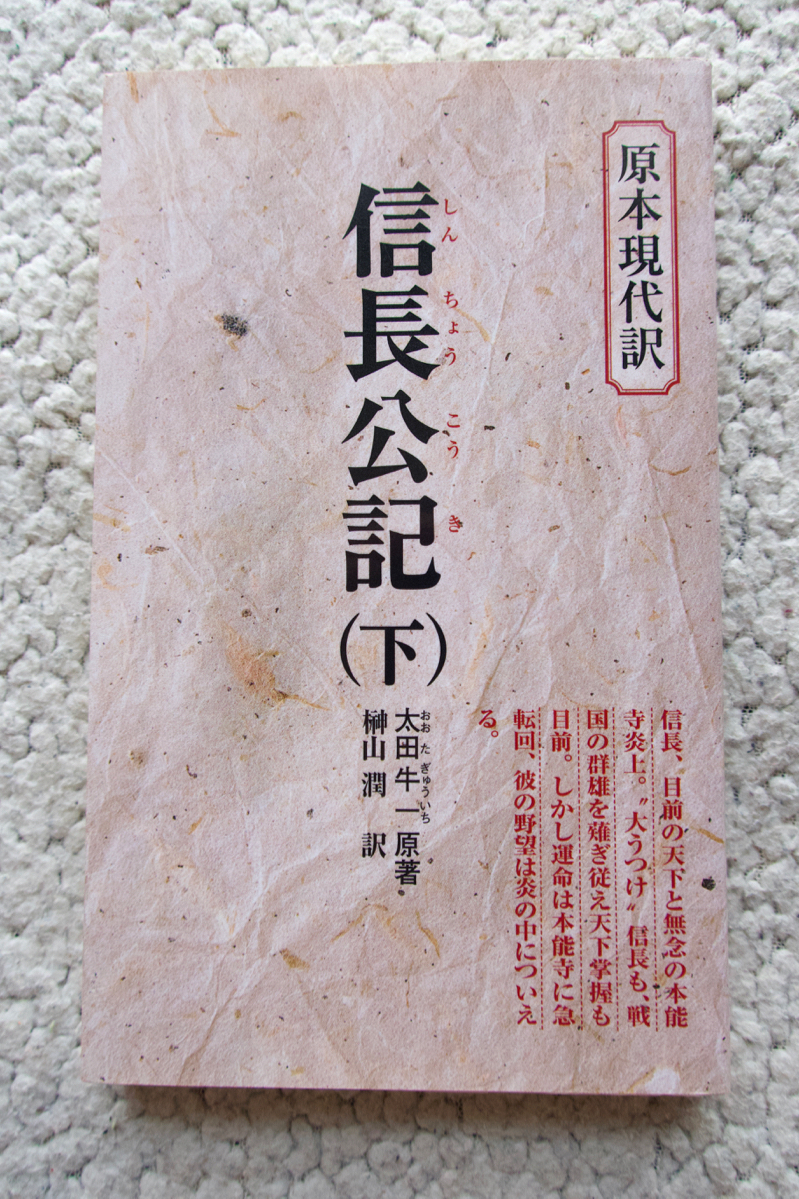 原本現代訳
信長公記(下)
しんちょうこうき
太田牛一 原著
おおたぎゅういち
榊山潤 訳
信長、目前の天下と無念の本能
寺炎上。〝大うつけ〟信長も、戦
国の群雄を薙ぎ従え天下掌握も
目前。しかし運命は本能寺に急
転回、彼の野望は炎の中についえ
る。